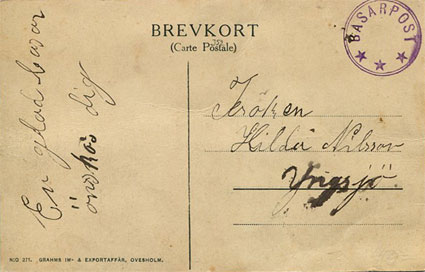 BREVKORT
(Carte Postale)
BASARPOST
En glad
önskas dig
Fröken
Hilda Nilsson
Yngsjö.
N:O 271. GRAHNS IM- & EXPORTAFFÄR, OVESHOLM.